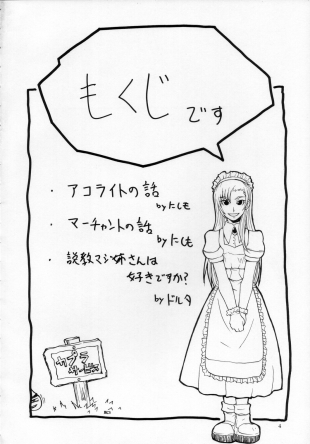 もくじ
です
・アコライトの話
byにしも
・マーチャントの話
byにしも
・説教マジ姉さんは
好きですか?
byドルタ
カプラ
サービス
4